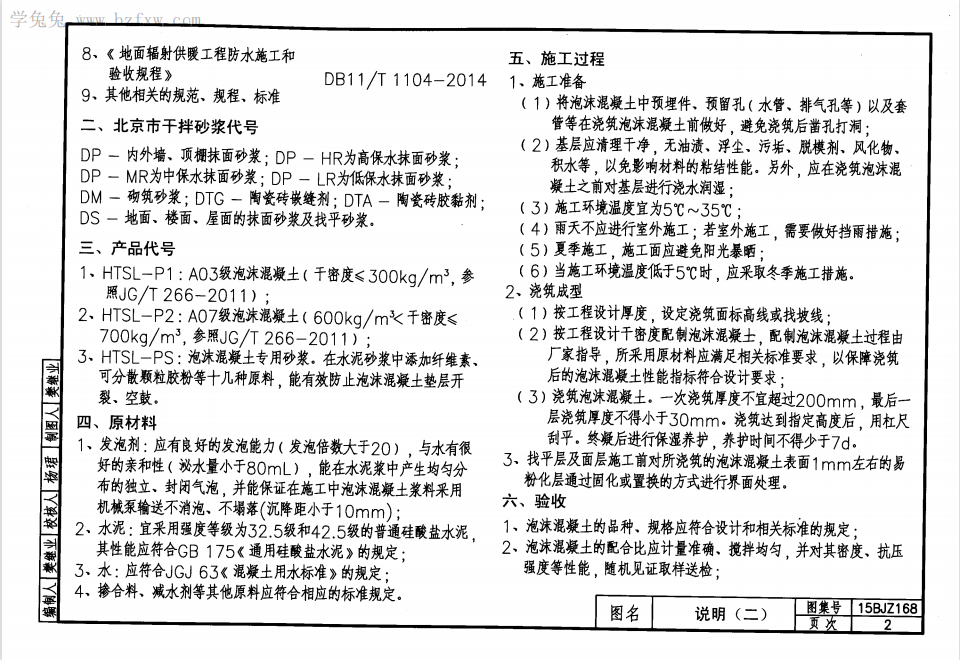 学兔兔 www.bzfxw.com
8、《地面辐射供暖工程防水施工和
验收规程》 DB11/T 1104-2014
9、其他相关的规范、规程、标准
二、北京市干拌砂浆代号
DP - 内外墙、顶棚抹面砂浆; DP - HR为高保水抹面砂浆;
DP - MR为中保水抹面砂浆; DP - LR为低保水抹面砂浆;
DM - 砌筑砂浆; DTG - 陶瓷砖嵌缝剂; DTA - 陶瓷砖胶黏剂;
DS - 地面、楼面、屋面的抹面砂浆及找平砂浆。
三、产品代号
1、HTSL-P1: A03级泡沫混凝土(干密度≤300kg/m³,参
照JG/T 266-2011);
2、HTSL-P2: A07级泡沫混凝土(600kg/m³<干密度≤
700kg/m³,参照JG/T 266-2011);
3、HTSL-PS: 泡沫混凝土专用砂浆。在水泥砂浆中添加纤维素、
可分散颗粒胶粉等十几种原料,能有效防止泡沫混凝土垫层开
裂、空鼓。
四、原材料
1、发泡剂: 应有良好的发泡能力(发泡倍数大于20),与水有很
好的亲和性(泌水量小于80mL),能在水泥浆中产生均匀分
布的独立、封闭气泡,并能保证在施工中泡沫混凝土浆料采用
机械泵输送不消泡、不塌落(沉降距小于10mm);
2、水泥: 宜采用强度等级为32.5级和42.5级的普通硅酸盐水泥,
其性能应符合GB 175《通用硅酸盐水泥》的规定;
3、水: 应符合JGJ 63《混凝土用水标准》的规定;
4、掺合料、减水剂等其他原料应符合相应的标准规定。
五、施工过程
1、施工准备
(1)将泡沫混凝土中预埋件、预留孔(水管、排气孔等)以及套
管等在浇筑泡沫混凝土前做好,避免浇筑后凿孔打洞;
(2)基层应清理干净,无油渍、浮尘、污垢、脱模剂、风化物、
积水等,以免影响材料的粘结性能。另外,应在浇筑泡沫混
凝土之前对基层进行浇水润湿;
(3)施工环境温度宜为5℃~35℃;
(4)雨天不应进行室外施工;若室外施工,需要做好挡雨措施;
(5)夏季施工,施工面应避免阳光暴晒;
(6)当施工环境温度低于5℃时,应采取冬季施工措施。
2、浇筑成型
(1)按工程设计厚度,设定浇筑面标高线或找坡线;
(2)按工程设计干密度配制泡沫混凝土,配制泡沫混凝土过程由
厂家指导,所采用原材料应满足相关标准要求,以保障浇筑
后的泡沫混凝土性能指标符合设计要求;
(3)浇筑泡沫混凝土。一次浇筑厚度不宜超过200mm,最后一
层浇筑厚度不得小于30mm。浇筑达到指定高度后,用杠尺
刮平。终凝后进行保湿养护,养护时间不得少于7d。
3、找平层及面层施工前对所浇筑的泡沫混凝土表面1mm左右的易
粉化层通过固化或置换的方式进行界面处理。
六、验收
1、泡沫混凝土的品种、规格应符合设计和相关标准的规定;
2、泡沫混凝土的配合比应计量准确、搅拌均匀,并对其密度、抗压
强度等性能,随机见证取样送检;
编制人 樊继业 校核人 杨珺 制图人 樊继业
图名 说明(二) 图集号 15BJZ168
页次 2